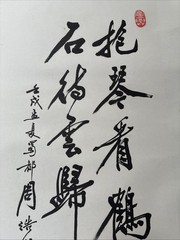 抱琴看鶴
石待雲歸
壬戌孟夏蜀都周